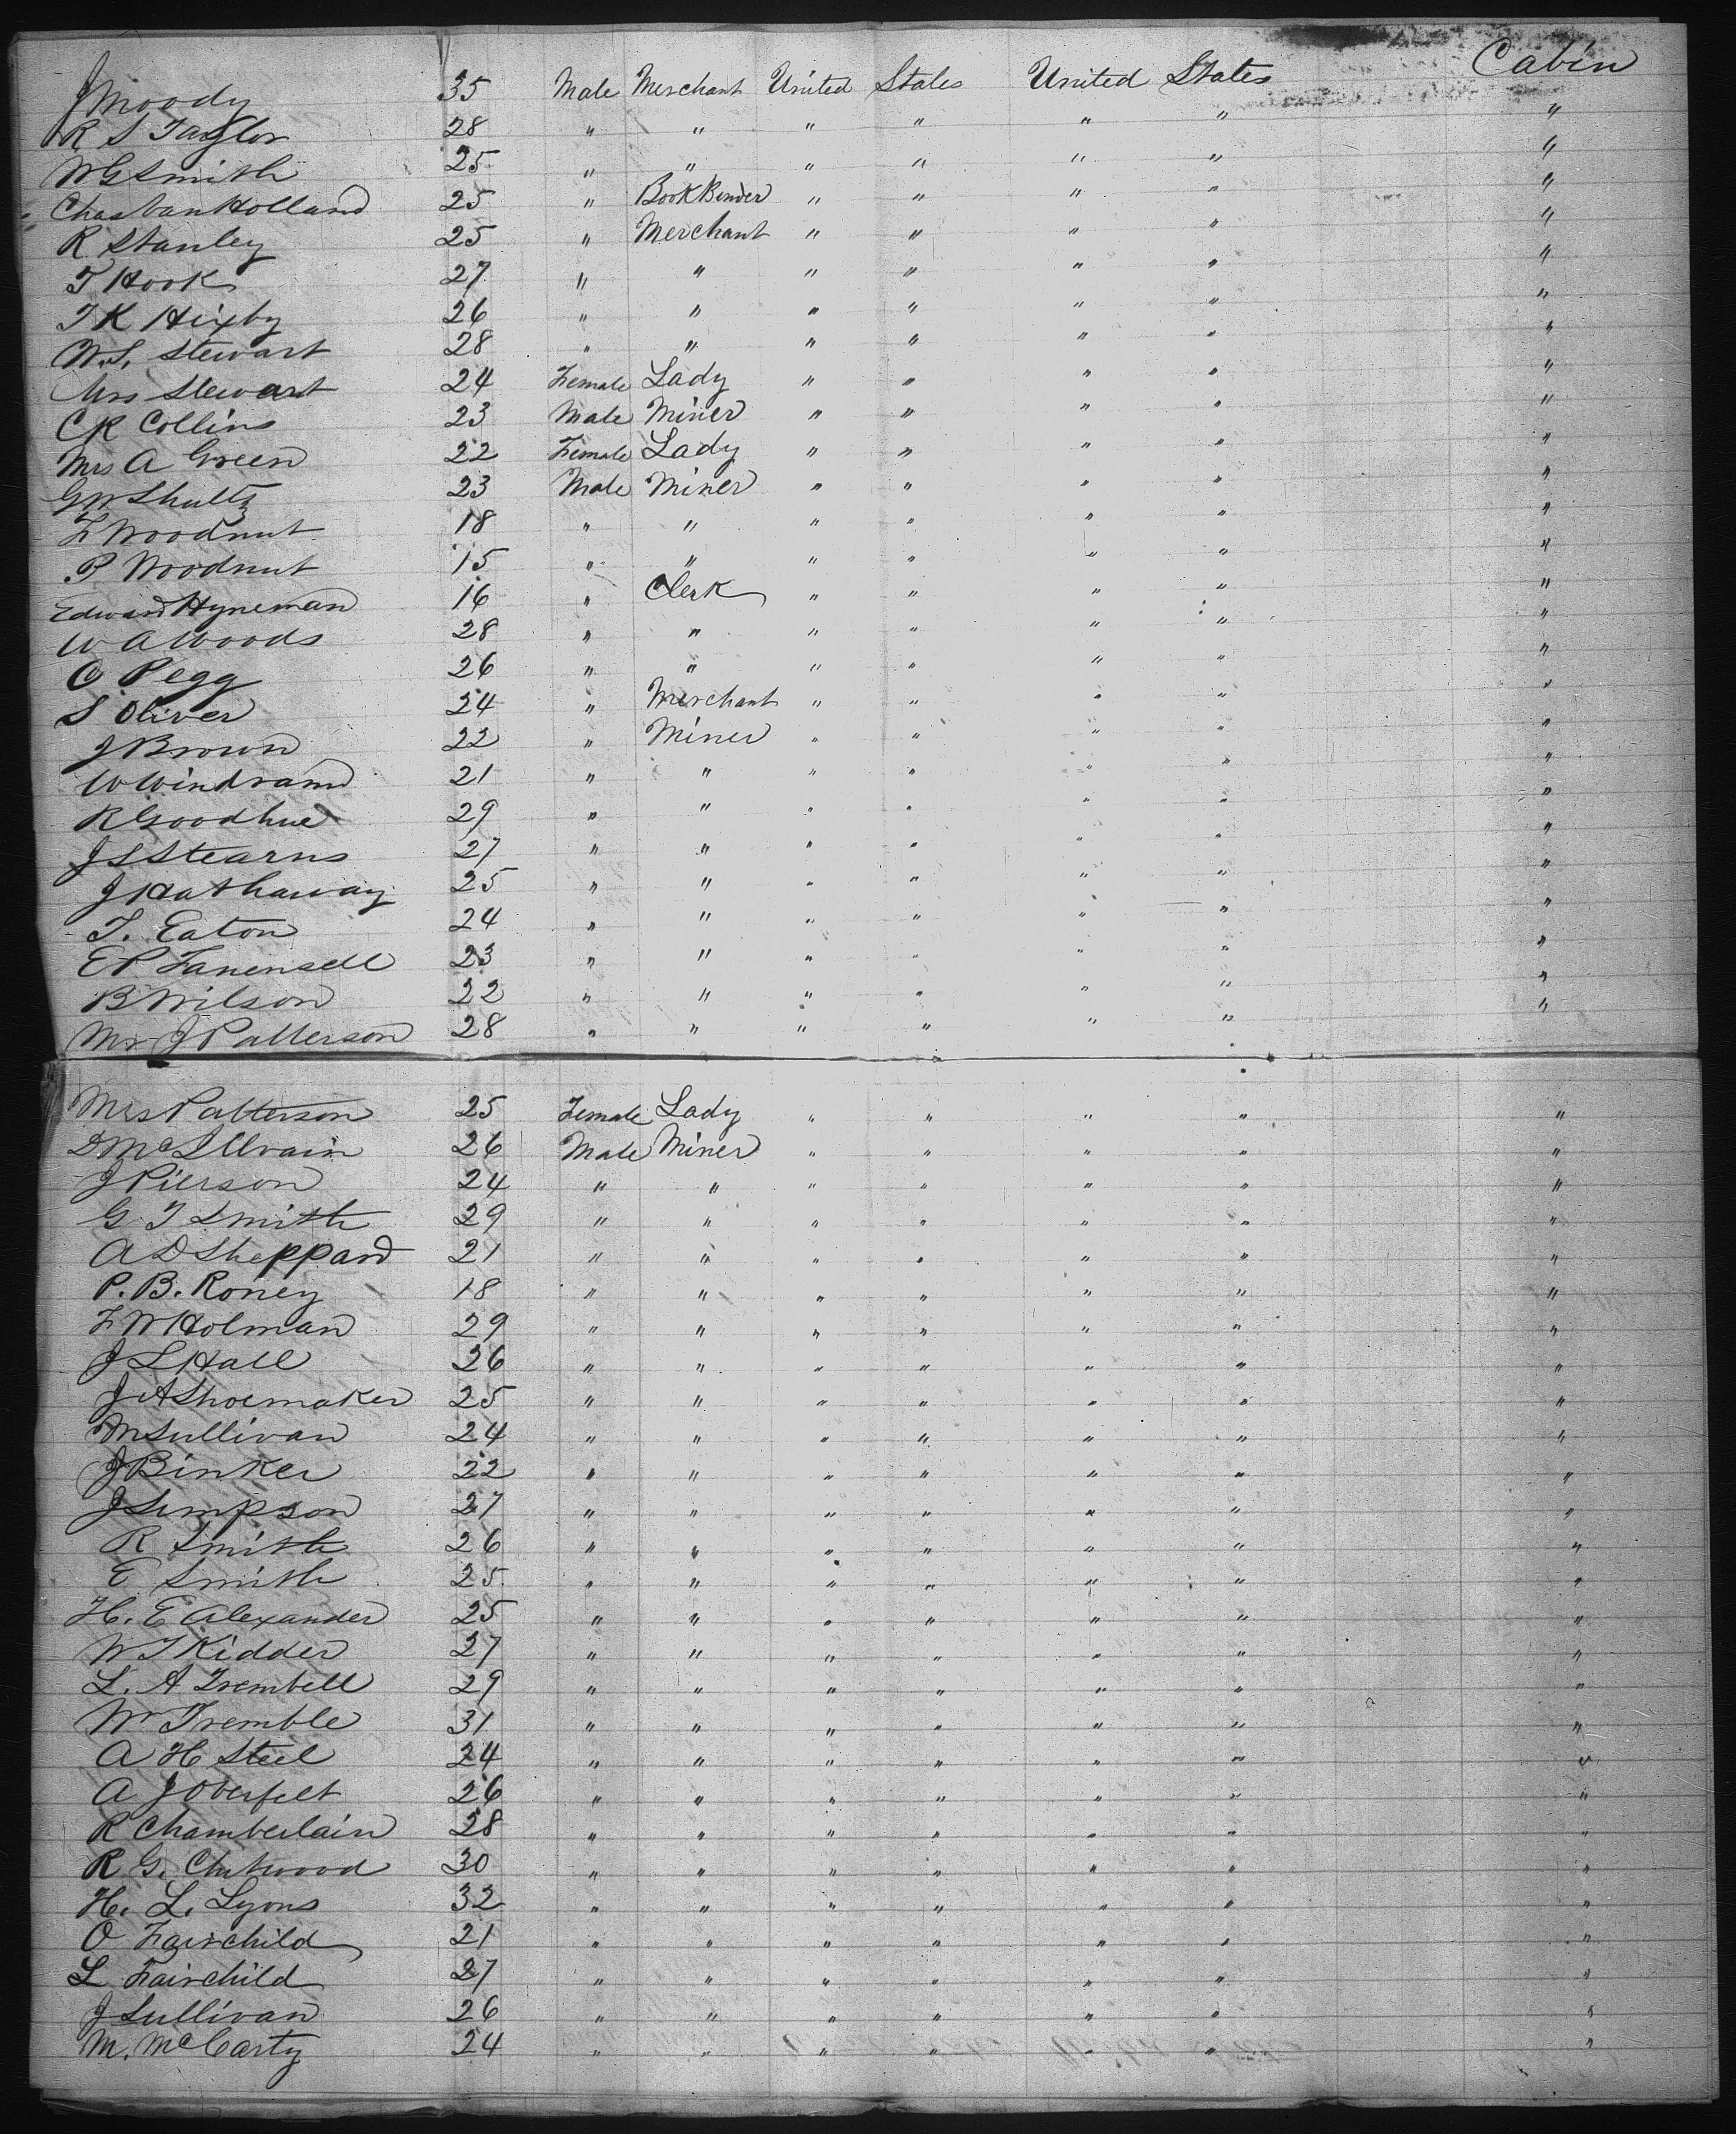 J Moody 35 Male Merchant United States United States Cabin
R S Taylor 28 " " " " " " "
W G Smith 25 " " " " " " "
Chas Van Holland 25 " Book Binder " " " " "
R Stanley 25 " Merchant " " " " "
T Hook 27 " " " " " " "
T K Hixby 26 " " " " " " "
W. S. Stewart 28 " " " " " " "
Mrs Stewart 24 Female Lady " " " " "
C R Collins 23 Male Miner " " " " "
Mrs A Green 22 Female Lady " " " " "
G W Shultz 23 Male Miner " " " " "
L Woodnut 18 " " " " " " "
P Woodnut 15 " " " " " " "
Edward Hyneman 16 " Clerk " " " " "
W A Woods 28 " " " " " " "
O Pegg 26 " " " " " " "
S Oliver 24 " Merchant " " " " "
J Brown 22 " Miner " " " " "
W Windram 21 " " " " " " "
R Goodhue 29 " " " " " " "
J S Stearns 27 " " " " " " "
J Hathaway 25 " " " " " " "
T. Eaton 24 " " " " " " "
E P 23 " " " " " " "
B Wilson 22 " " " " " " "
Mr J Patterson 28 " " " " " " "
Mrs Patterson 25 Female Lady " " " " "
D McIllvain 26 Male Miner " " " " "
J Pierson 24 " " " " " " "
G T Smith 29 " " " " " " "
A D Sheppard 21 " " " " " " "
P. B. Roney 18 " " " " " " "
F W Holman 29 " " " " " " "
J L Hall 26 " " " " " " "
J A Shoemaker 25 " " " " " " "
M Sullivan 24 " " " " " " "
J Binker 22 " " " " " " "
J Simpson 27 " " " " " " "
R Smith 26 " " " " " " "
E Smith 25 " " " " " " "
H. E Alexander 25 " " " " " " "
W T Kidder 27 " " " " " " "
L. A Trembell 29 " " " " " " "
W Tremble 31 " " " " " " "
A H Steel 24 " " " " " " "
A J Overfelt 26 " " " " " " "
R Chamberlain 28 " " " " " " "
R G. Chitwood 30 " " " " " " "
H. L. Lyons 32 " " " " " " "
O Fairchild 21 " " " " " " "
L Fairchild 27 " " " " " " "
J Sullivan 26 " " " " " " "
M. McCarty 24 " " " " " " "